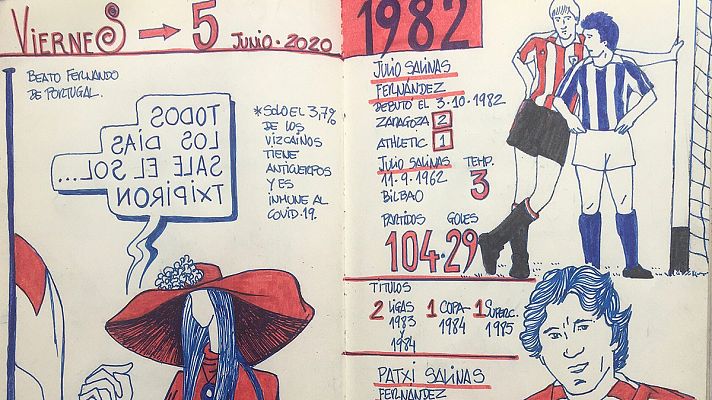 VIERNES → 5 JUNIO · 2020
BEATO FERNANDO
DE PORTUGAL.
TODOS
LOS DÍAS
SALE EL SOL...
TXIPIRON
*SOLO EL 3,7%
DE LOS
VIZCAINOS
TIENE
ANTICUERPOS
Y ES
INMUNE AL
COVID-19.
1982
JULIO SALINAS
FERNÁNDEZ
DEBUTÓ EL 3·10·1982
ZARAGOZA 2
ATHLETIC 1
JULIO SALINAS
11·9·1962
BILBAO
TEMP.
3
PARTIDOS GOLES
104·29
TÍTULOS
2 LIGAS
1983
Y
1984
1 COPA
1984
1 SUPERC.
1985
PATXI SALINAS
FERNÁNDEZ